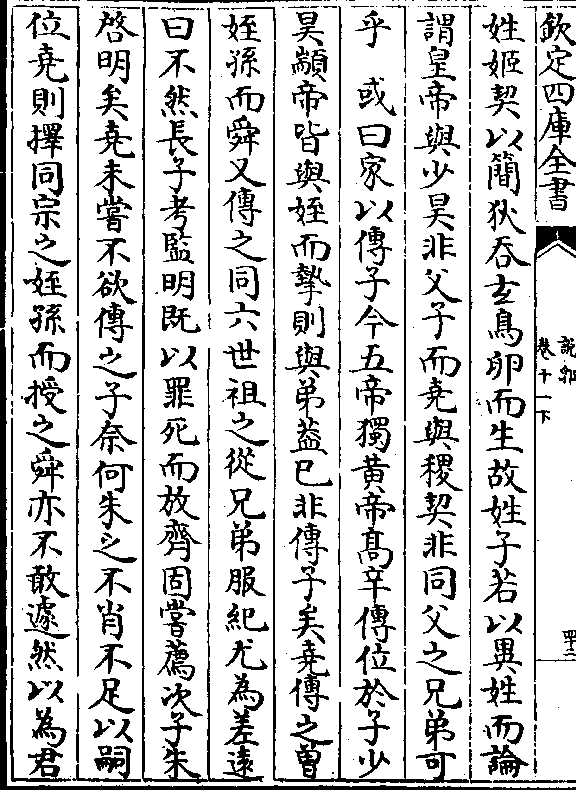 欽定四庫全書
說郛
卷十一下
四十三
姓姬契以簡狄吞玄鳥卵而生故姓子若以異姓而論
謂皇帝與少昊非父子而堯與稷契非同父之兄弟可
乎　或曰家以傳子今五帝獨黄帝髙辛傳位於子少
昊顓帝皆與姪而摯則與弟葢已非傳子矣堯傳之曽
姪孫而舜又傳之同六世祖之從兄弟服紀尤為差遠
曰不然長子考監明既以罪死而放齊固嘗薦次子朱
啓明矣堯未嘗不欲傳之子奈何朱之不肖不足以嗣
位堯則擇同宗之姪孫而授之舜亦不敢遽然以為君